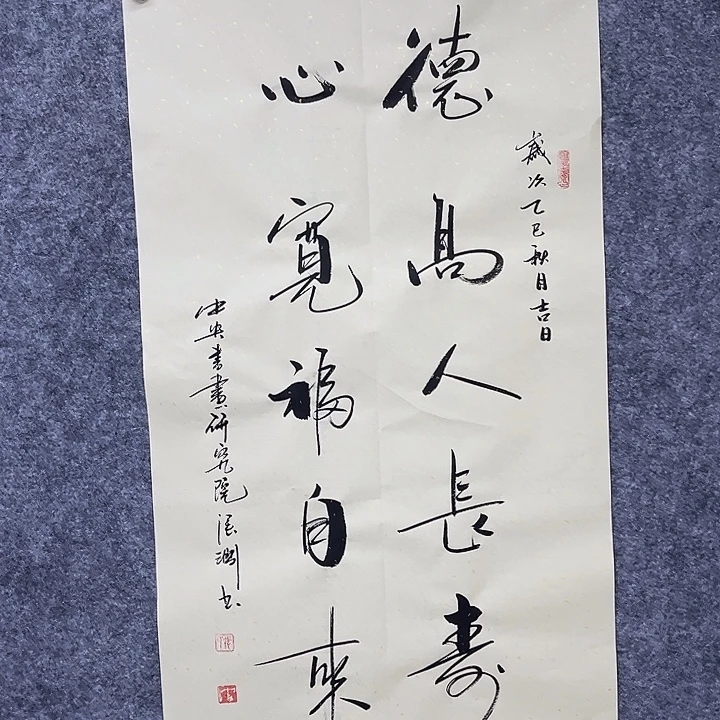 歲次乙巳秋月吉日
德高人長壽
心寬福自來
中央書畫研究院 淵書